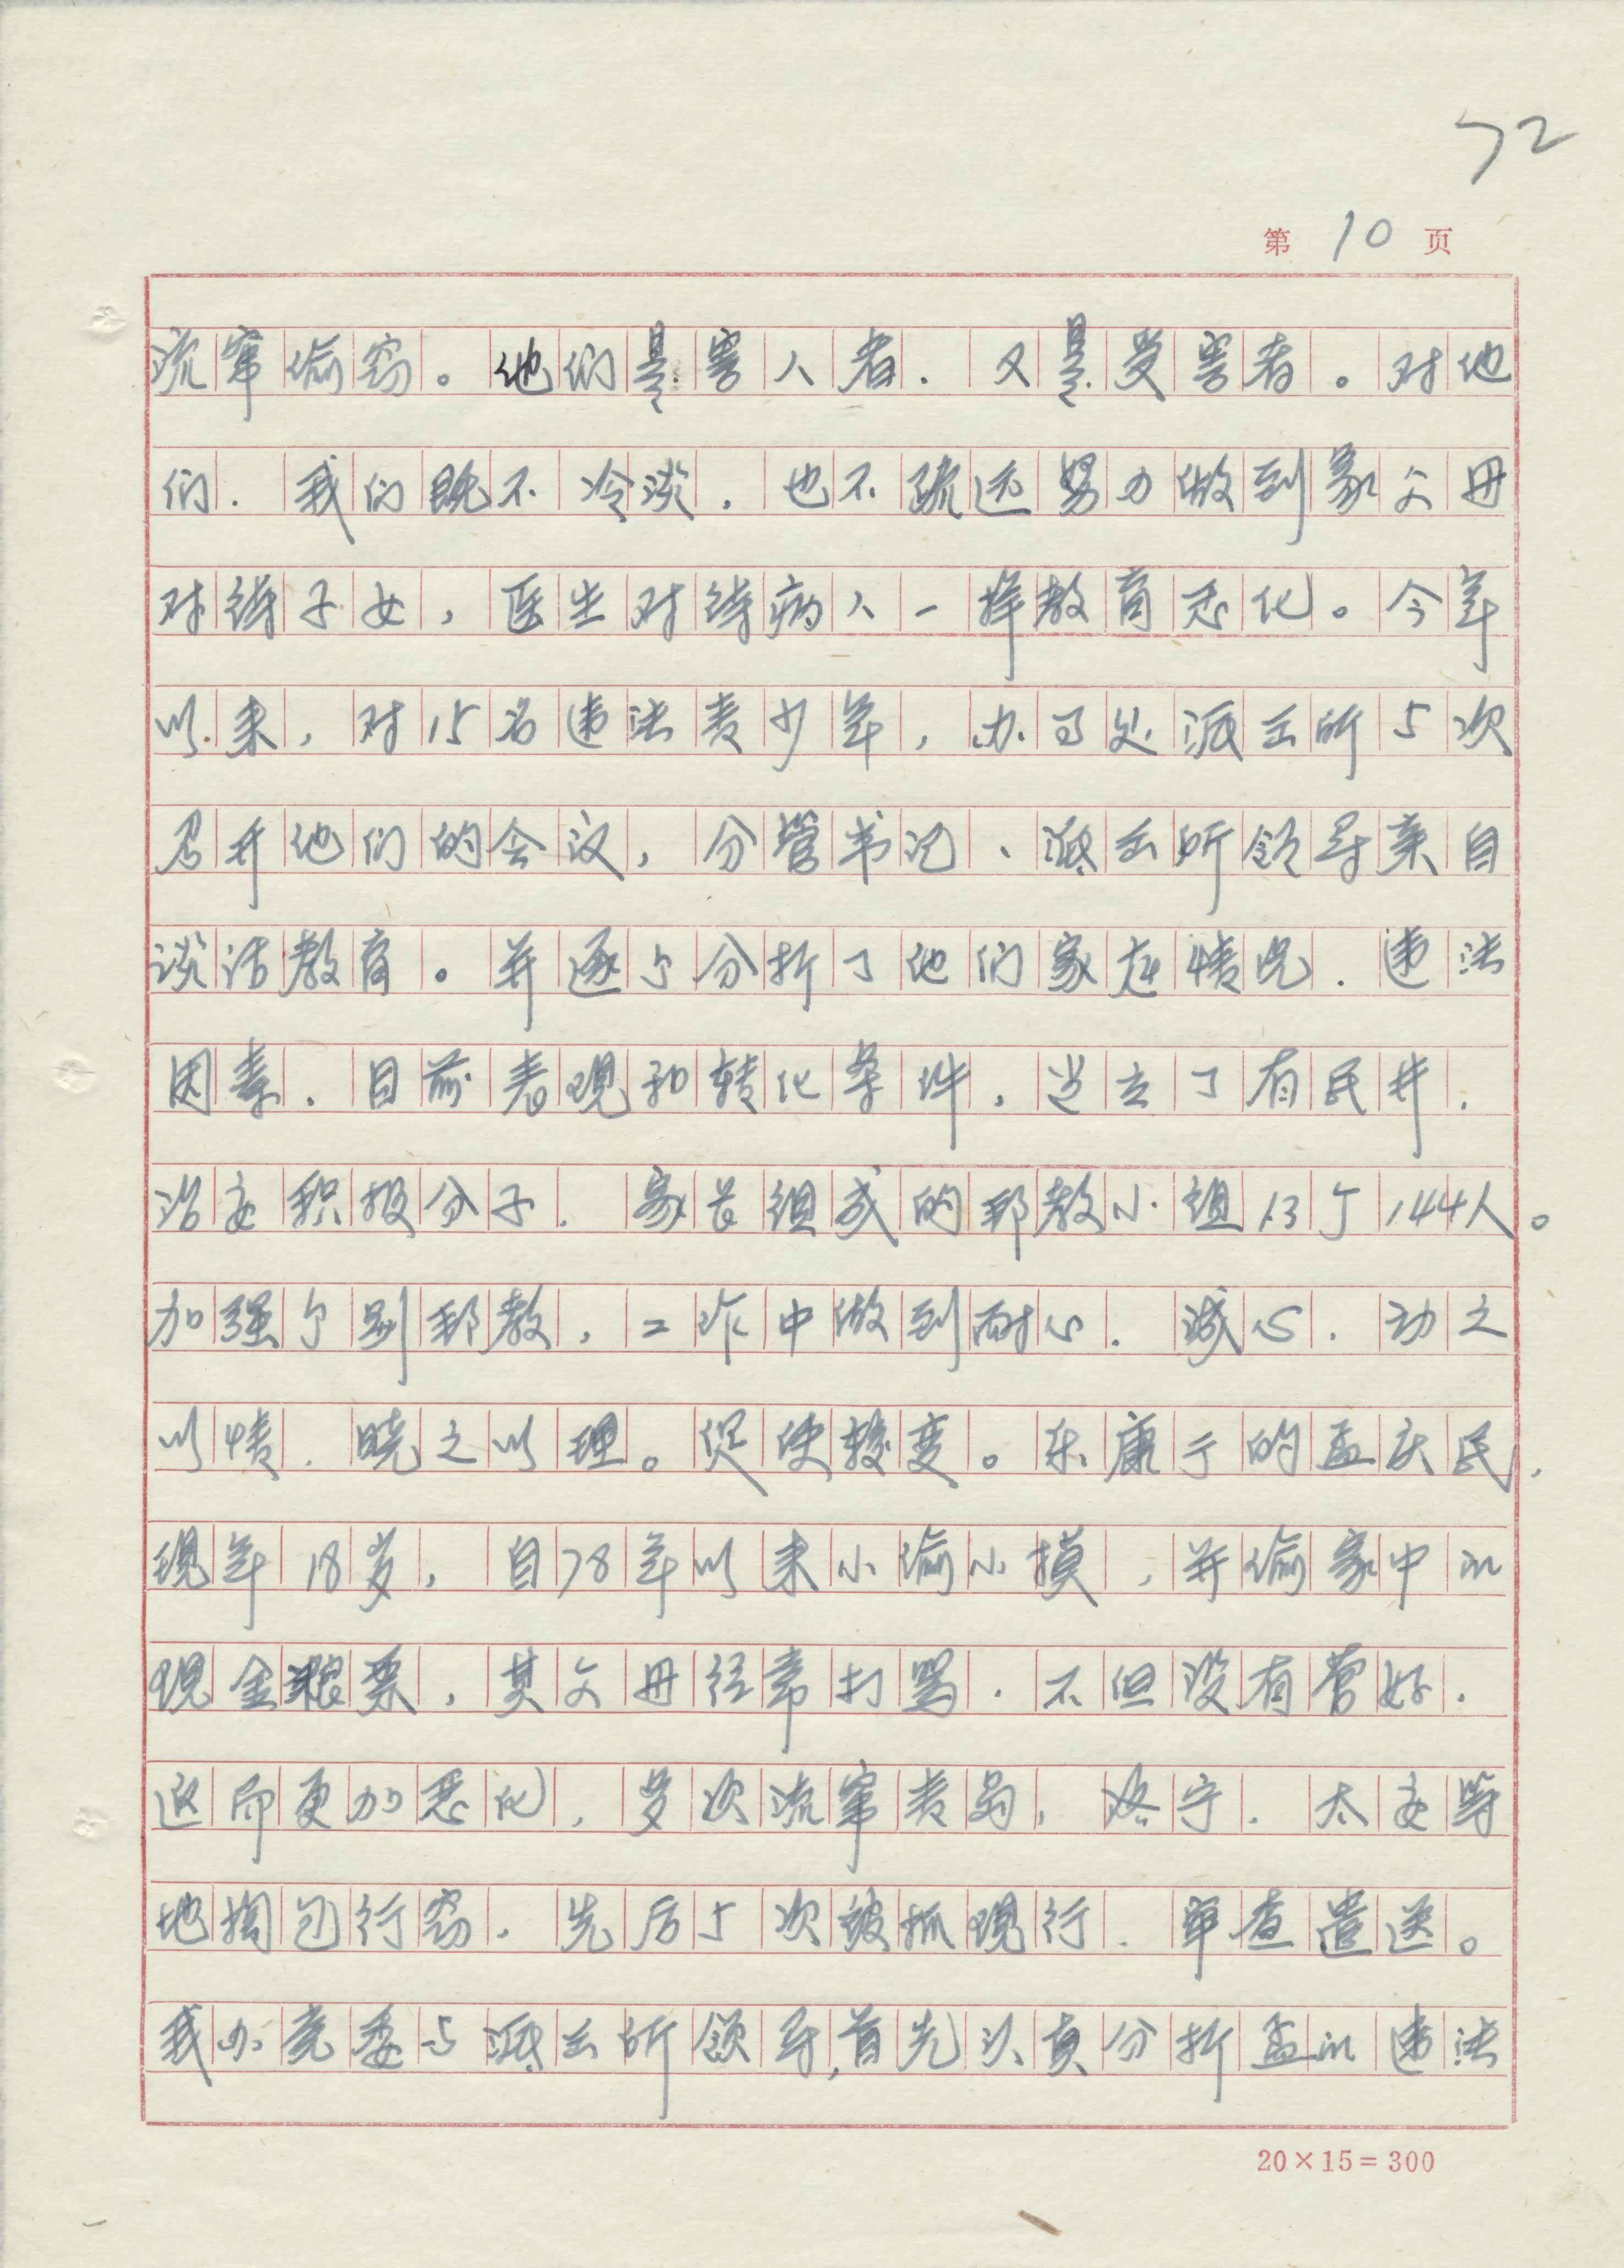 72
第 10 页
流窜偷窃。他们是害人者．又是受害者。对他
们．我们既不冷淡．也不疏远努力做到象父母
对待子女，医生对待病人一样教育感化。今年
以来，对15名违法青少年，办事处派出所5次
召开他们的会议，分管书记、派出所领导亲自
谈话教育。并逐个分折了他们家庭情况．违法
因素．目前表现和转化条件，建立了有民井．
治安积极分子．家长组成的帮教小组13个144人。
加强个别帮教，工作中做到耐心．诚心．动之
以情．晓之以理。促使转变。东康于的孟庆民，
现年18岁，自78年以来小偷小摸，并偷家中的
现金粮票，其父母经常打骂．不但没有管好．
返而更加恶化，多次流窜青岛，济宁．太安等
地掏包行窃．先后5次被抓现行．审查遣送。
我办党委与派出所领导，首先认真分折孟的违法
20×15=300